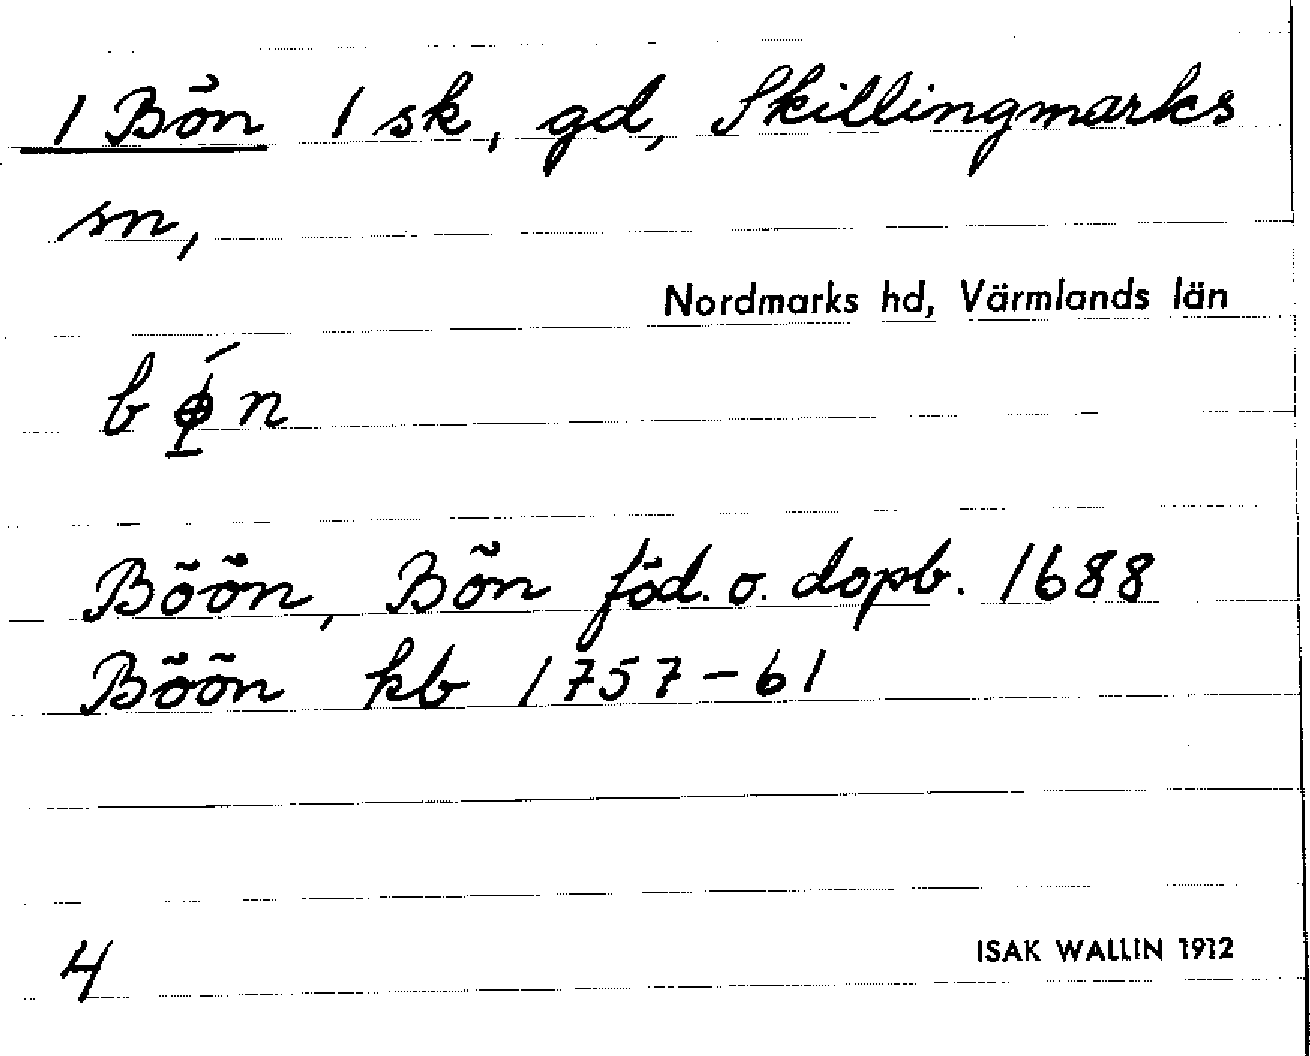 1 Bön 1 sk, gd, Skillingmarks
sn,
Nordmarks hd, Värmlands län
Böön, Bön föd. o. dopb. 1688
Böön kb 1757-61
4
ISAK WALLIN 1912